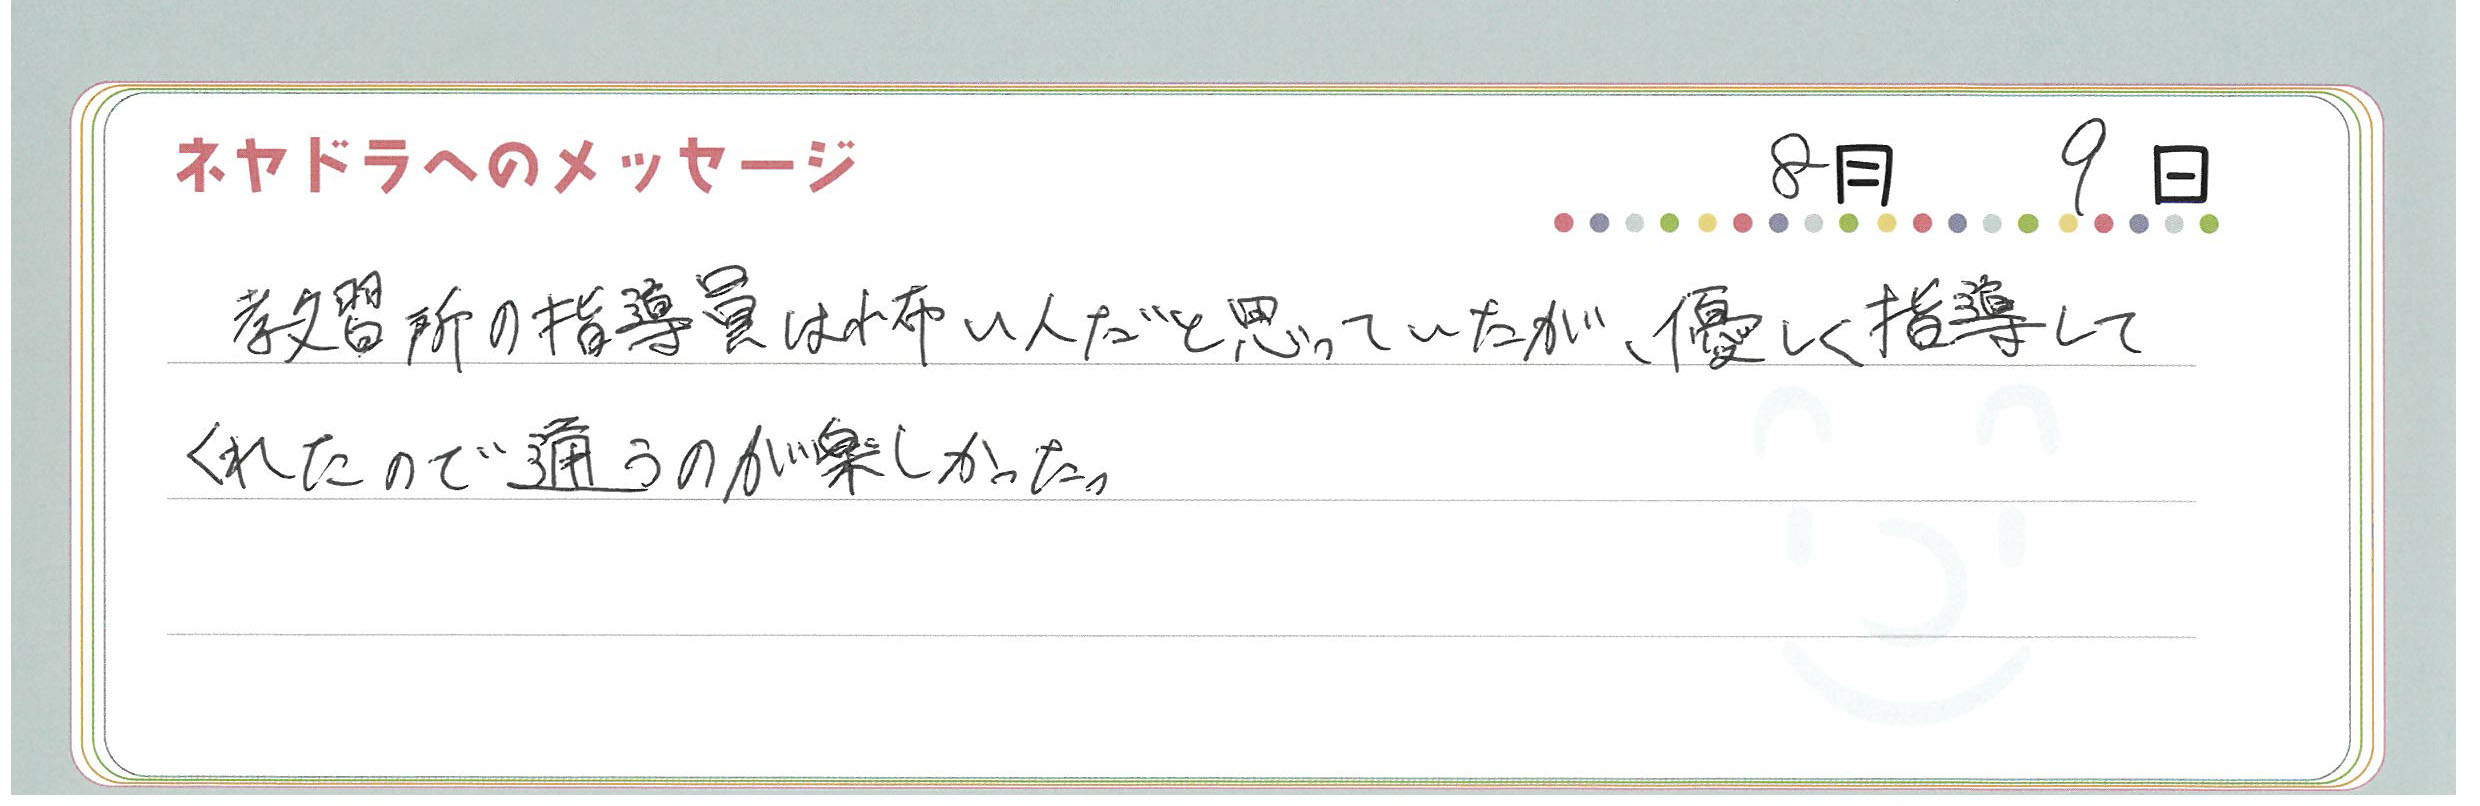 ネヤドラへのメッセージ
8月 9日
教習所の指導員は怖い人だと思っていたが、優しく指導して
くれたので通うのが楽しかった。